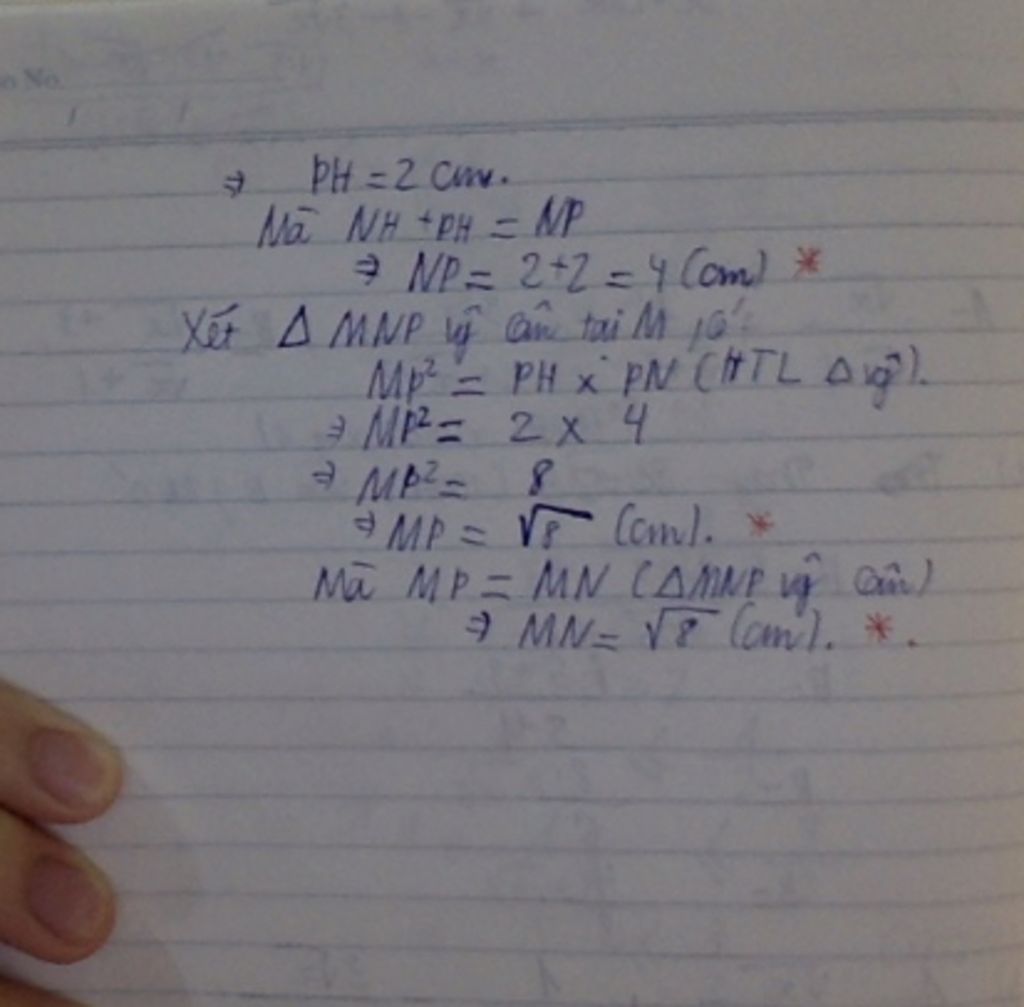 No.
⇒ PH = 2 cm.
Mà NH + PH = NP
⇒ NP = 2+2 = 4 (cm) *
Xét Δ MNP vg̑ cân tại M, có:
MP² = PH x PN (HTL Δ vg̑).
⇒ MP² = 2 x 4
⇒ MP² = 8
⇒ MP = √8 (cm). *
Mà MP = MN (ΔMNP vg̑ cân)
⇒ MN = √8 (cm). * .